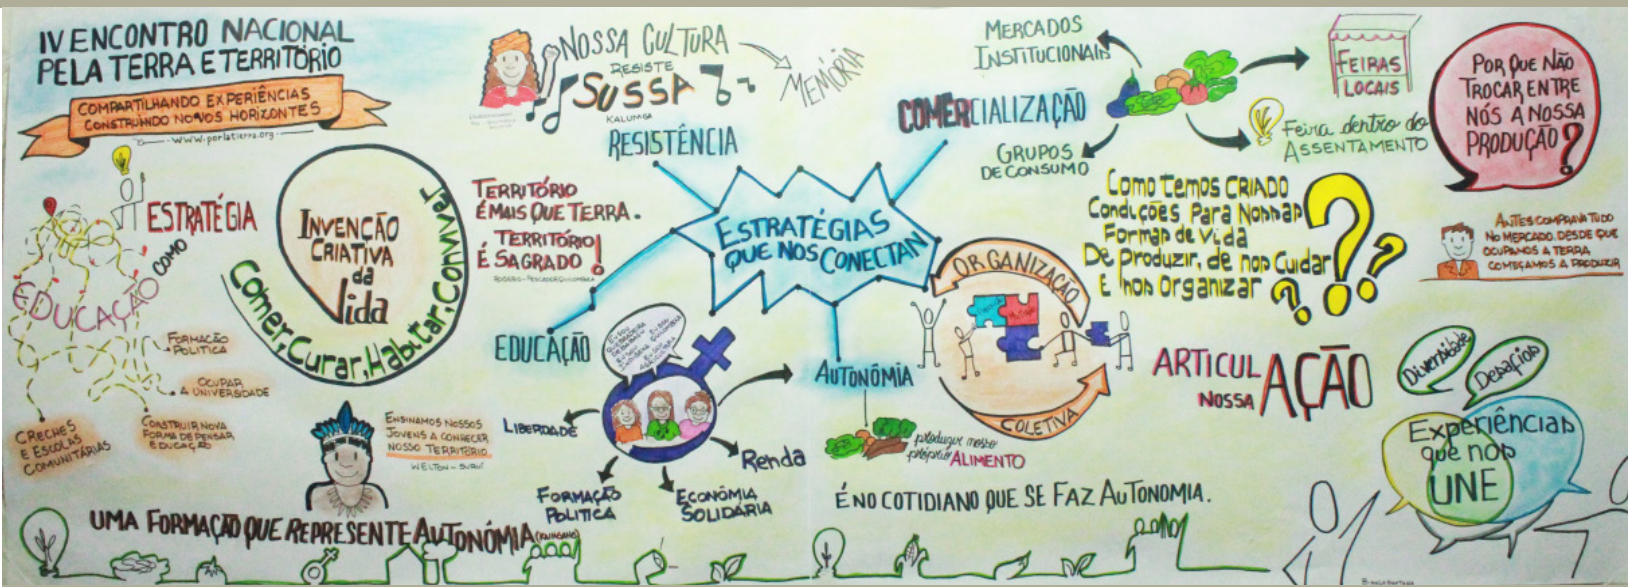 IV ENCONTRO NACIONAL
PELA TERRA E TERRITÓRIO
COMPARTILHANDO EXPERIÊNCIAS
CONSTRUINDO NOVOS HORIZONTES
www.porlatierra.org
ESTRATÉGIA
COMO
EDUCAÇÃO
FORMAÇÃO
POLITICA
OCUPAR
A UNIVERSIDADE
CRECHES
E ESCOLAS
COMUNITÁRIAS
CONSTRUIR NOVA
FORMA DE PENSAR
E EDUCAÇÃO
INVENÇÃO
CRIATIVA
da
Vida
Comer, Curar, Habitar, Conviver
ENSINAMOS NOSSOS
JOVENS A CONHECER
NOSSO TERRITÓRIO
WELTON - SURUÍ
UMA FORMAÇÃO QUE REPRESENTE AUTONÓMIA (KAINGANG)
NOSSA CULTURA
RESISTE
SUSSA
KALUNGA
MEMÓRIA
RESISTÊNCIA
TERRITÓRIO
É MAIS QUE TERRA.
TERRITÓRIO
É SAGRADO!
ESTRATÉGIAS
QUE NOS CONECTAN
EDUCAÇÃO
LIBERDADE
FORMAÇÃO
POLITICA
ECONÔMIA
SOLIDÁRIA
Renda
AUTONÓMIA
produzir nosso
próprio ALIMENTO
É NO COTIDIANO QUE SE FAZ AUTONOMIA.
ORGANIZAÇÃO
COLETIVA
COMERCIALIZAÇÃO
MERCADOS
INSTITUCIONAIS
FEIRAS
LOCAIS
GRUPOS
DE CONSUMO
Feira dentro do
ASSENTAMENTO
POR QUE NÃO
TROCAR ENTRE
NÓS A NOSSA
PRODUÇÃO?
Como temos CRIADO
Condições Para Nossas
Formas de Vida
De produzir, de nos Cuidar
E nos Organizar ???
ANTES COMPRAVA TUDO
NO MERCADO. DESDE QUE
OCUPAMOS A TERRA
COMEÇAMOS A PRODUZIR
ARTICUL AÇÃO
NOSSA
Diversidade
Desafios
Experiências
que nos
UNE